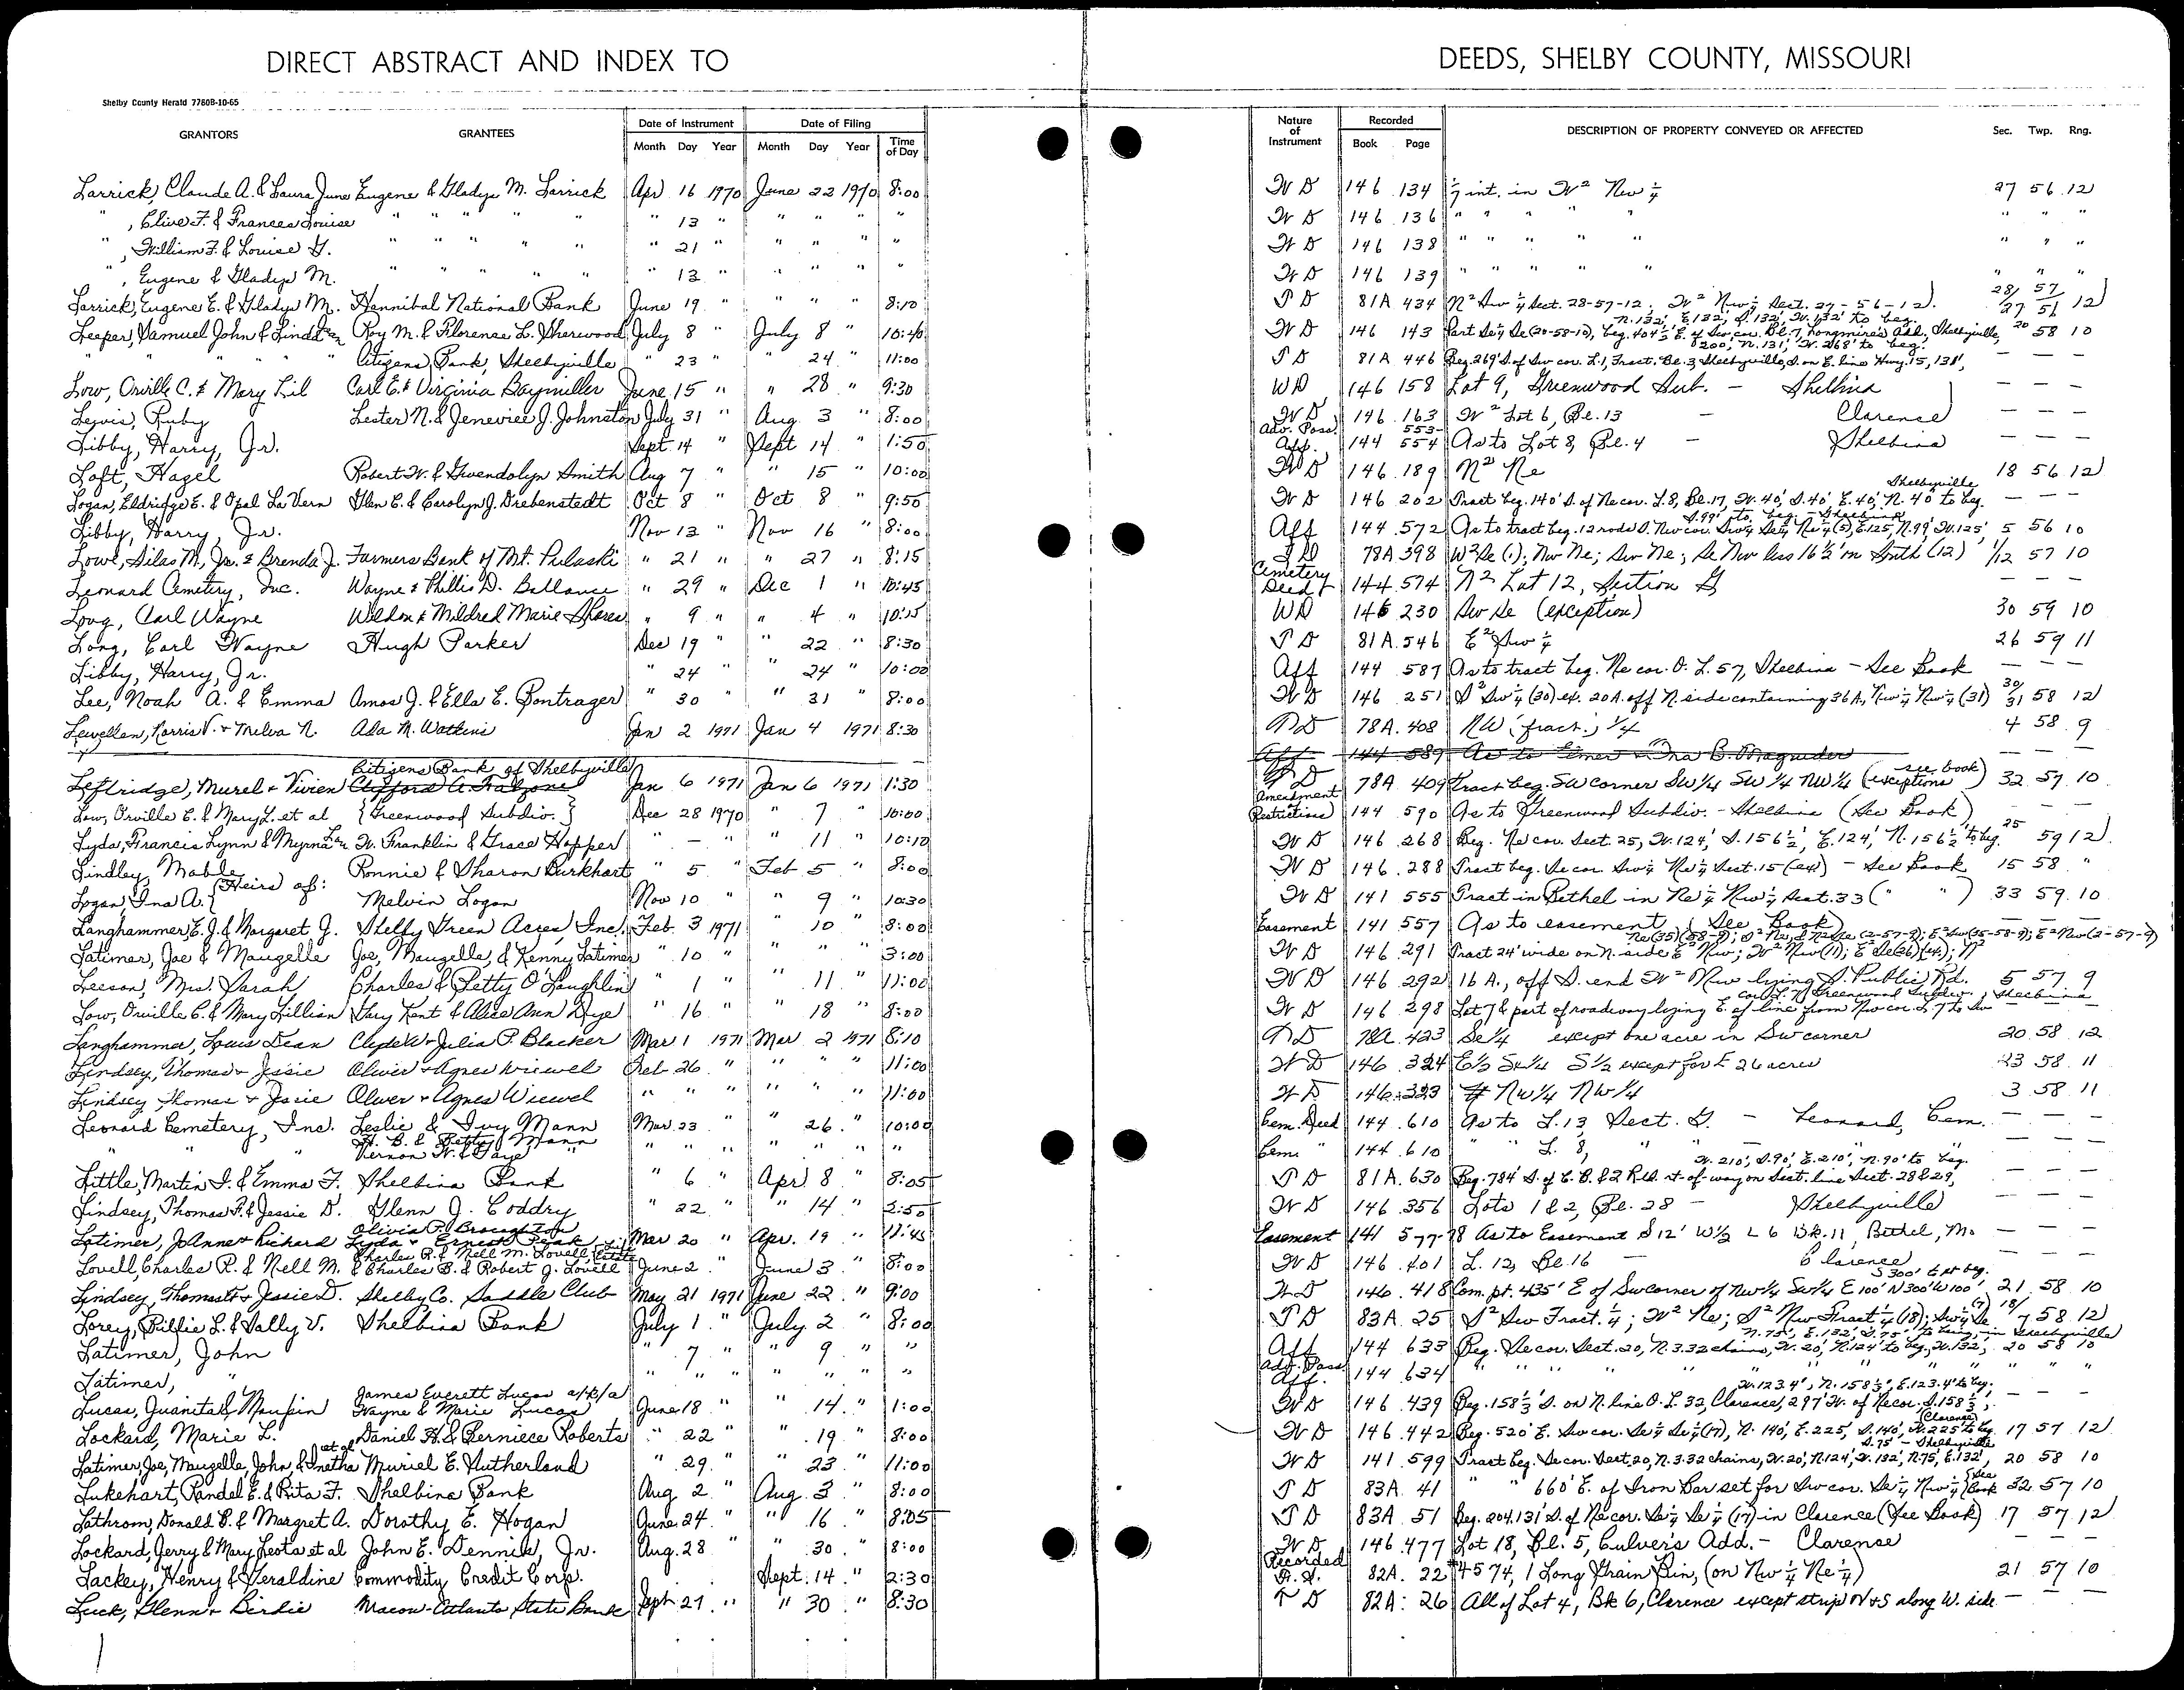 DIRECT ABSTRACT AND INDEX TO DEEDS, SHELBY COUNTY, MISSOURI
Shelby County Herald 7760B-10-65
GRANTORS GRANTEES Date of Instrument Date of Filing Nature of Instrument Recorded DESCRIPTION OF PROPERTY CONVEYED OR AFFECTED Sec. Twp. Rng.
Month Day Year Month Day Year Time of Day Book Page
Larrick, Claude A. & Laura June Eugene & Gladys M. Larrick Apr 16 1970 June 22 1970 8:00 W D 146 134 1/7 int. in W² Nw ¼ 27 56 12
" , Clive F. & Frances Louise " " " " " " 13 " " " " " W D 146 136 " " " " " " " "
" , William F. & Louise G. " " " " " " 21 " " " " " W D 146 138 " " " " " " " "
" , Eugene & Gladys M. " " " " " " 13 " " " " " W D 146 139 " " " " " " " "
Larrick, Eugene E. & Gladys M. Hannibal National Bank June 19 " " " " 8:10 T D 81A 434 N² Sw ¼ Sect. 28-57-12. W² Nw ¼ Sect. 27-56-12). 28/27 57/56 12
Leeper, Samuel John & Linda Roy M. & Florence L. Sherwood July 8 " July 8 " 10:40 W D 146 143 Part Se¼ Se (20-58-10), beg. 404½ E. of Sw cor. Bl. 7, Longmire's Add., Shelbyville, N. 132', E. 132', S. 132', W. 132' to beg. 20 58 10
" " " " Citizens Bank, Shelbyville " 23 " 24 " 11:00 T D 81A 446 Beg. 269' S. of Sw cor. L. 1, Tract. Bl. 3 Shelbyville, S. on E. line Hwy. 15, 131', E. 200', N. 131', W. 268' to beg. — — —
Low, Orville C. & Mary Lil Carl E. & Virginia Baymiller June 15 " " 28 " 9:30 WD 146 158 Lot 9, Greenwood Sub. - Shelbina — — —
Lewis, Ruby Lester N. & Jeneviee J. Johnston July 31 " Aug. 3 " 8:00 W D 146 163 W² Lot 6, Bl. 13 - Clarence — — —
Libby, Harry, Jr. Sept. 14 " Sept 14 " 1:50 Adv. Poss. Aff. 144 553-554 As to Lot 8, Bl. 4 - Shelbina — — —
Loft, Hazel Robert W. & Gwendolyn Smith Aug 7 " " 15 " 10:00 W D 146 189 N² Ne 18 56 12
Logan, Eldridge E. & Opal La Vern Glen E. & Carolyn J. Drebenstedt Oct 8 " Oct 8 " 9:50 W D 146 202 Tract beg. 140' S. of Ne cor. L. 8, Bl. 17, W. 40', S. 40', E. 40', N. 40' to beg. Shelbyville — — —
Libby, Harry, Jr. Nov 13 " Nov 16 " 8:00 Aff 144 572 As to tract beg. 12 rods S. Nw cor. Sw¼ Se¼ Ne¼ (5), E. 125', N. 99', W. 125', S. 99' to beg. - Shelbina 5 56 10
Lowe, Silas M., Jr. & Brenda J. Farmers Bank of Mt. Pulaski " 21 " " 27 " 8:15 T D 78A 398 W²Se (1); Nw Ne; Sw Ne; Se Nw less 16½' on South (12) 1/12 57 10
Leonard Cemetery, Inc. Wayne & Phillis D. Ballance " 29 " Dec 1 " 10:45 Cemetery Deed 144 574 N² Lot 12, Section G — — —
Long, Carl Wayne Weldon & Mildred Marie Shores " 9 " " 4 " 10:15 WD 146 230 Sw Se (exception) 30 59 10
Long, Carl Wayne Hugh Parker Dec 19 " " 22 " 8:30 T D 81A 546 E² Sw ¼ 26 59 11
Libby, Harry, Jr. " 24 " 24 " 10:00 Aff 144 587 As to tract beg. Ne cor. O. L. 57, Shelbina - See Book — — —
Lee, Noah A. & Emma Amos J. & Ella E. Bontrager " 30 " " 31 " 8:00 W D 146 251 S² Sw¼ (30) ex. 20 A. off N. side containing 36 A, Nw¼ Nw¼ (31) 30/31 58 12
Lewellen, Norris V. & Melva N. Ada M. Watkins Jan 2 1971 Jan 4 1971 8:30 T D 78A. 408 NW (fract.) 1/4 4 58 9
Aff 144 589 As to Elmer & Ina B. Magruder
Leftridge, Murel & Vivien Citizens Bank of Shelbyville Jan 6 1971 Jan 6 1971 1:30 T D 78A 409 Tract beg. SW corner SW 1/4 SW 1/4 NW 1/4 (see book exceptions) 32 59 10
Low, Orville C. & Mary L. et al {Greenwood Subdiv.} Dec 28 1970 " 7 " 10:00 Amendment Restrictions 144 590 As to Greenwood Subdiv. - Shelbina (See Book) — — —
Lyda, Francis Lynn & Myrna W. Franklin & Grace Hopper " — " 11 " 10:10 W D 146 268 Beg. Ne cor. Sect. 25, W. 124', S. 156½', E. 124', N. 156½' to beg. 25 59 12
Lindley, Mable Ronnie & Sharon Burkhart " 5 " Feb 5 " 8:00 W D 146. 288 Tract beg. Se cor. Sw¼ Ne¼ Sect. 15 (ex) - See Book 15 58 "
Logan, Ina A. {Heirs of: Melvin Logan Nov 10 " " 9 " 10:30 W D 141 555 Tract in Bethel in Ne¼ Nw¼ Sect. 33 ( " " ) 33 59 10
Langhammer, E. J. & Margaret J. Shelby Green Acres, Inc. Feb. 3 1971 " 10 " 8:00 Easement 141 557 As to easement (See Book) — — —
Latimer, Joe & Maugelle Joe, Maugelle, & Kenny Latimer " 10 " " " " 3:00 W D 146 291 Tract 24' wide on N. side E² Nw; W² Nw (11); E² Se (26) (24); N² Ne (35) (58-9); S² Ne, & N² Se (2-57-9); E² Sw (35-58-9); E² Nw (2-57-9)
Leeson, Mrs. Sarah Charles & Betty O'Laughlin " 1 " " 11 " 11:00 W D 146 292 16 A., off S. end W² Nw lying S. Public Rd. 5 57 9
Low, Orville C. & Mary Lillian Gary Kent & Alice Ann Dye " 16 " 18 " 8:00 W D 146 298 Lot 7 & part of roadway lying E. of line from Nw cor. L. 7 to Sw cor. L. 7, Greenwood Subdiv., Shelbina
Langhammer, Louis Dean Clyde W & Julia P. Blacker Mar 1 1971 Mar 2 1971 8:10 T D 78A 423 Se¼ except one acre in Sw corner 20 58 12
Lindsey, Thomas & Jessie Oliver & Agnes Wiewel Feb 26 " " " " 11:00 W D 146 324 E½ Sw¼ S½ except for E 26 acres 23 58 11
Lindsey, Thomas & Jessie Oliver & Agnes Wiewel " " " " " " 11:00 W D 146 323 Nw¼ NW¼ 3 58 11
Leonard Cemetery, Inc. Leslie & Ivy Mann Mar. 23 " " 26 " 10:00 Cem. Deed 144 610 As to L. 13, Sect. G. - Leonard, Cem. — — —
" " " H. B. & Betty Mann Vernon W. & Faye " " " " " " " " Cem. " 144 610 " " L. 8, " " — — —
Little, Martin I. & Emma F. Shelbina Bank " 6 " Apr 8 " 8:05 T D 81A. 630 Beg. 784' S. of C. B. & Q R.R. rt-of-way on Sect. line Sect. 28 & 29, W. 210', S. 90', E. 210', N. 90' to beg. — — —
Lindsey, Thomas F. & Jessie D. Glenn J. Coddry " 22 " " 14 " 2:50 W D 146 356 Lots 1 & 2, Bl. 28 - Shelbyville — — —
Latimer, JoAnne & Richard Olivia P. Broughton Lyda & Ernest Peak Mar 20 " Apr. 19 " 11:45 Easement 141 577-78 As to Easement S 12' W½ L 6 Bk. 11, Bethel, Mo — — —
Lovell, Charles R. & Nell M. Charles R. & Nell M. Lovell Life Estate & Charles B. & Robert J. Lovell June 2 " June 3 " 8:00 W D 146 401 L. 12, Bl. 16 — Clarence — — —
Lindsey, Thomas F & Jessie D. Shelby Co. Saddle Club May 21 1971 June 22 " 9:00 W D 146. 418 Com. pt. 435' E of Sw corner of Nw¼ Sw¼ E 100' N 300' W 100' S 300' to pt beg. 21 58 10
Lorey, Billie L. & Sally V. Shelbina Bank July 1 " July 2 " 8:00 T D 83A. 25 S² Sw Fract. ¼; W² Ne; S² Nw Fract ¼ (18); Sw¼ Se (7) 18/7 58 12
Latimer, John " 7 " " 9 " " Aff 144 633 Beg. Se cor. Sect. 20, N. 3.32 chains, W. 20', N. 124' to beg., W. 132', N. 75', E. 132', S. 75' to beg. - in Shelbyville 20 58 10
Latimer, " " " " " " " " Adv. Poss. Aff. 144 634 " " " " " " " " "
Lucas, Juanita & Maupin James Everett Lucas a/k/a Wayne & Marie Lucas June 18 " " 14 " 1:00 W D 146 439 Beg. 158⅓' S. on N. line O. L. 32, Clarence, 297' W. of Ne cor. S. 158⅓', W. 123.4', N. 158⅓', E. 123.4' to beg. — — —
Lockard, Marie L. Daniel H. & Berniece Roberts " 22 " " 19 " 8:00 W D 146. 442 Beg. 520' E. Sw cor. Se¼ Se¼ (17), N. 140', E. 225', S. 140', W. 225' to beg. (Clarence) 17 57 12
Latimer, Joe, Maugelle, John, & Inetha et al Muriel E. Hutherland " 29 " " 23 " 11:00 W D 141. 599 Tract beg. Se cor. Sect 20, N. 3.32 chains, W. 20', N. 124', W. 132', N. 75', E. 132', S. 75' - Shelbyville 20 58 10
Lukehart, Randel E. & Rita F. Shelbina Bank Aug 2 " Aug. 3 " 8:00 T D 83A 41 " 660' E. of Iron Bar set for Sw cor. Se¼ Nw¼ {See Book 32 57 10
Lathrom, Donald B. & Margret A. Dorothy E. Hogan June 24 " " 16 " 8:05 T D 83A. 51 Beg. 204.131' S. of Ne cor. Se¼ Se¼ (17) in Clarence (See Book) 17 57 12
Lockard, Jerry & Mary Leota et al John E. Dennis, Jr. Aug. 28 " 30 " 8:00 W D 146. 477 Lot 18, Bl. 5, Culver's Add. - Clarence — — —
Lackey, Henry & Geraldine Commodity Credit Corp. Sept. 14 " 2:30 Recorded 82A. 22 #4574, 1 Long Grain Bin, (on Nw¼ Ne¼) 21 57 10
Luck, Glenn & Birdie Macon-Atlanta State Bank Sept 27 " " 30 " 8:30 T D 82A: 26 All of Lot 4, Bk 6, Clarence except strip N & S along W. side — — —